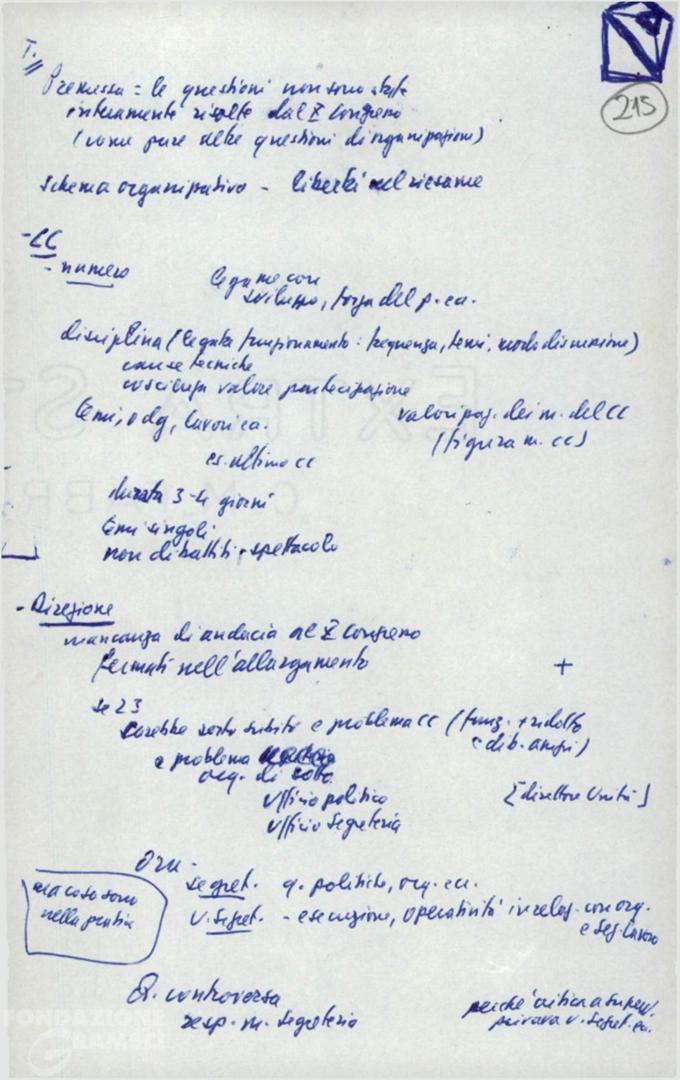 I.
215
Premessa = le questioni non sono state
interamente risolte dal X Congresso
(come pure altre questioni di organizzazione)
Schema organizzativo - libertà nel riesame
- CC
- numero
legame con
sviluppo, forza del p. ecc.
disciplina (legata funzionamento: frequenza, temi, modo discussione)
cause tecniche
coscienza valore partecipazione
temi, odg, lavori ca.
valorizzaz. dei m. del CC
(figura m. CC)
es. ultimo CC
durata 3-4 giorni
temi singoli
non dibattiti-spettacolo
- Direzione
mancanza di audacia al X Congresso
fermati nell'allargamento
+
se 23
sarebbe sorto subito e problema CC (funz. + ridotto
e dib. ampi)
e problema
org. di sotto
Ufficio politico
[direttore Unità]
Ufficio Segreteria
Ora -
ma cosa sono
nella pratica
segret. q. politiche, org. ecc.
U. Segret. - esecuzione, operatività in relaz. con org.
e sez. lavoro
Q. controversa
resp. m. segreteria
perché critica a
U. Segret. ecc.
FONDAZIONE
GRAMSCI